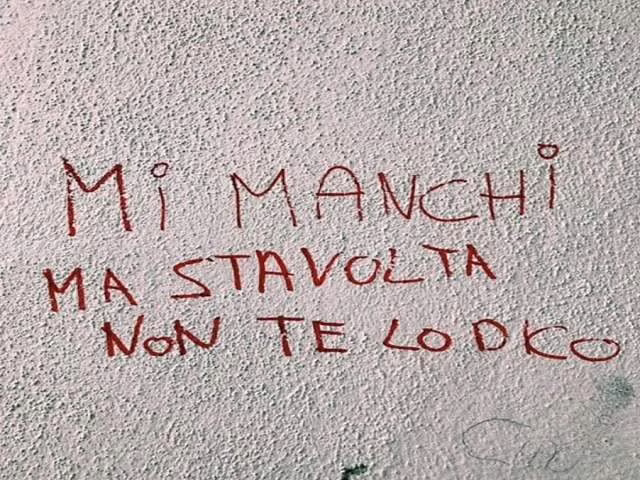 Mi MANCHi
MA STAVOLTA
NON TE LO DICO